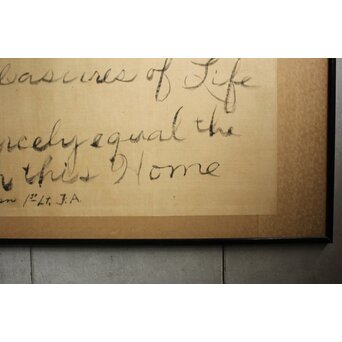 leasures of Life
ncely equal the
n this Home
on 1st Lt. F.A.